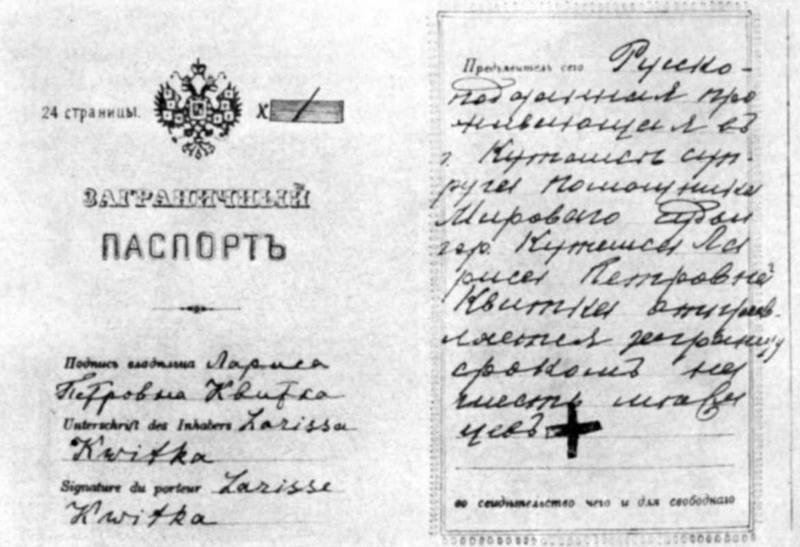 24 страницы. X
ЗАГРАНИЧНЫЙ
ПАСПОРТЪ
Подпись владѣльца Лариса
Петровна Квитка
Unterschrift des Inhabers Larissa
Kwitka
Signature du porteur Larisse
Kwitka
Предъявитель сего Русско-
подданная про
живающая въ
г. Кутаисѣ суп-
руга помощника
Мироваго Судьи
гор. Кутаиса Ла
риса Петровна
Квитка отправ-
ляется заграницу
срокомъ на
шесть мѣся
цевъ
во свидѣтельство чего и для свободнаго